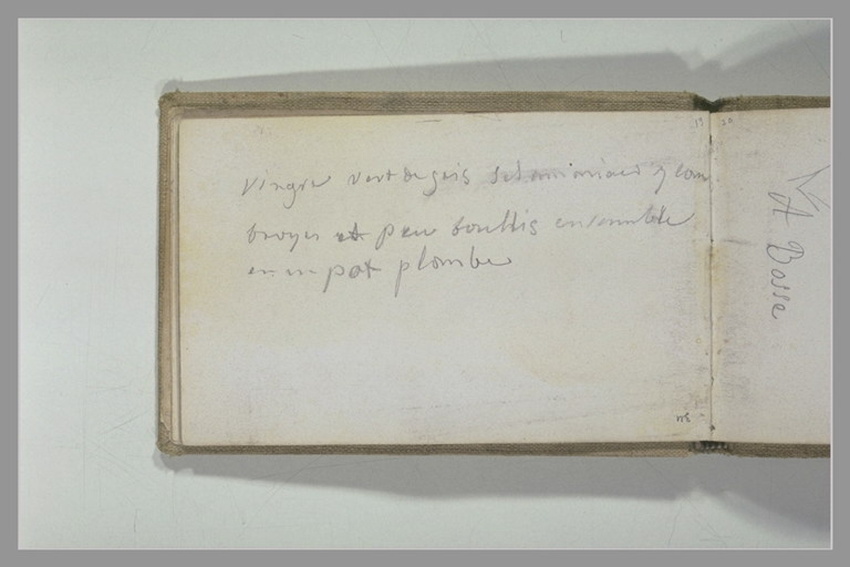 vingre vert de gris sel amoniac &
broyes et peu boullis ensemble
en un pot plombe
19
20
A Bosse